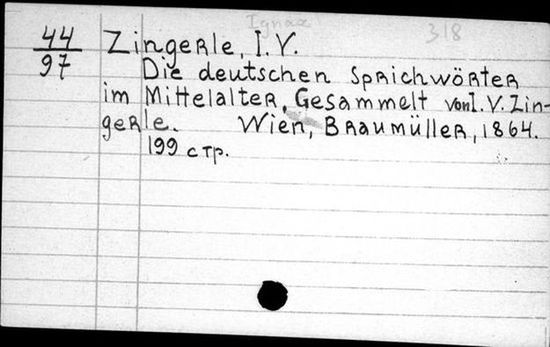 Ignaz
318
44
97
Zingerle, I. V.
Die deutschen Sprichwörter
im Mittelalter, Gesammelt von I. V. Zin-
gerle. Wien, Braumüller, 1864.
199 стр.